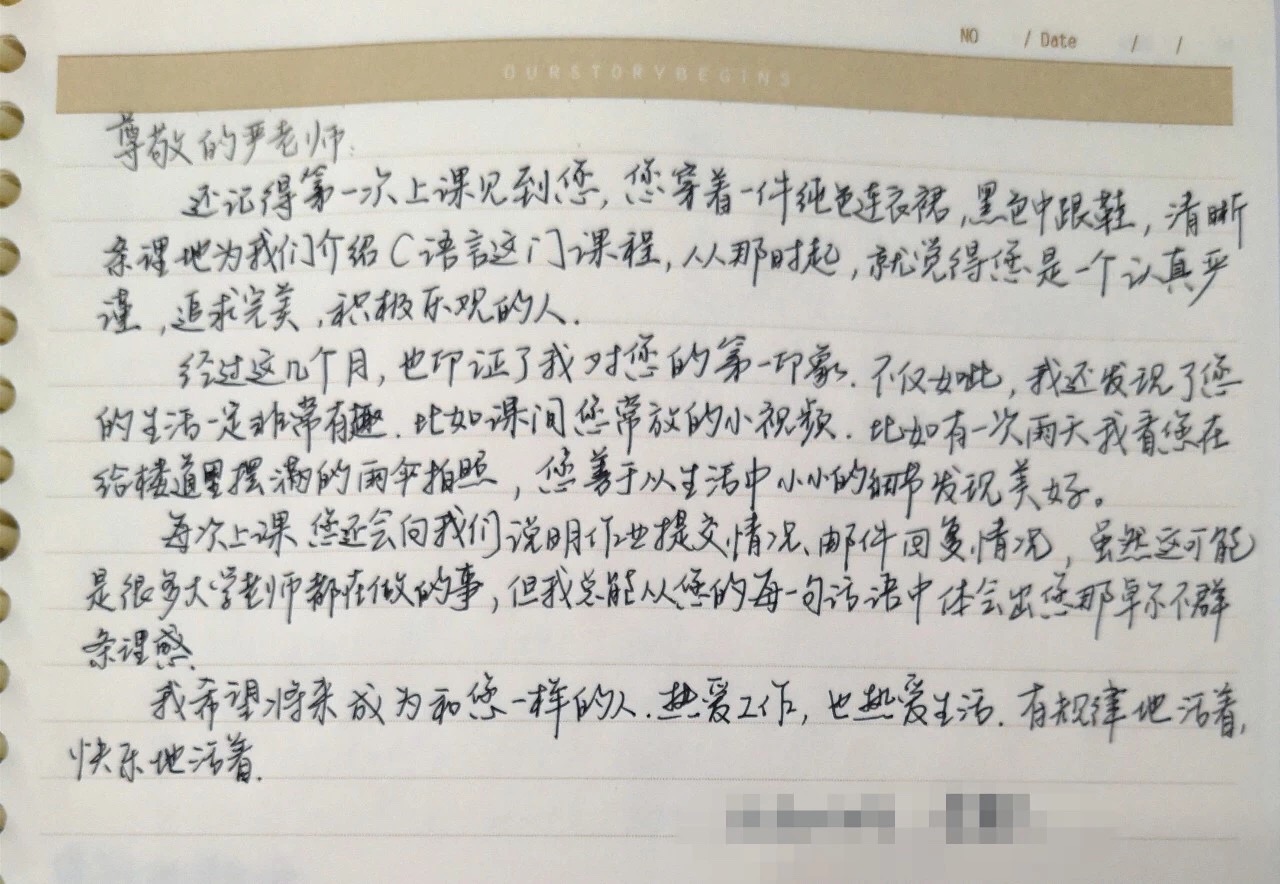 NO / Date / /
OURSTORYBEGINS
尊敬的严老师:
还记得第一次上课见到您,您穿着一件纯色连衣裙,黑色中跟鞋,清晰
条理地为我们介绍C语言这门课程,从那时起,就说得您是一个认真严
谨,追求完美,积极乐观的人.
经过这几个月,也印证了我对您的第一印象.不仅如此,我还发现了您
的生活一定非常有趣.比如课间您常放的小视频.比如有一次雨天我看您在
给楼道里摆满的雨伞拍照,您善于从生活中小小的细节发现美好。
每次上课您还会向我们说明作业提交情况、邮件回复情况,虽然这可能
是很多大学老师都在做的事,但我总能从您的每一句话语中体会出您那卓尔不群
条理感.
我希望将来成为和您一样的人.热爱工作,也热爱生活.有规律地活着,
快乐地活着.